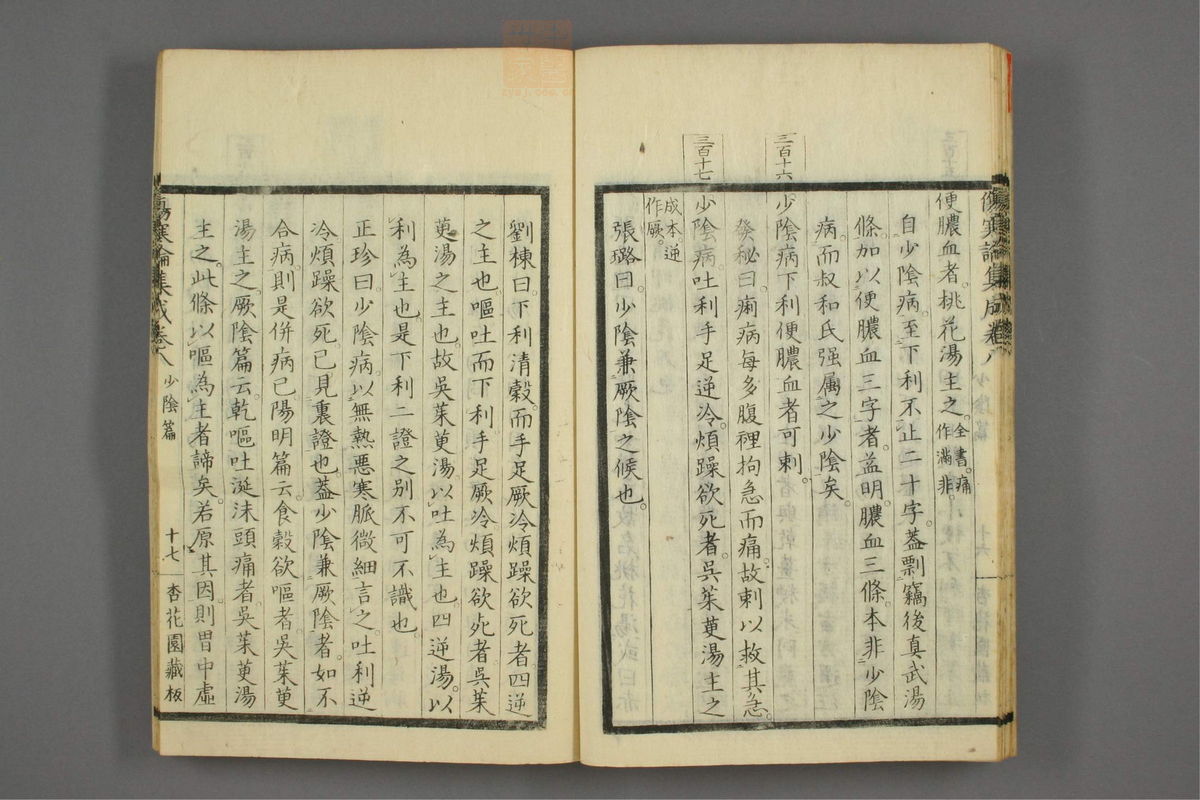 傷寒論集成卷八
三百十五
便膿血者桃花湯主之。全書痛作滿非。
自少陰病。至下利不止二十字。葢剽竊後真武湯
條。加以便膿血三字者。益明。膿血三條。本非少陰
病。而叔和氏强属之少陰矣。
三百十六
少陰病下利便膿血者可刺。
癸秘曰。痢病每多腹裡拘急而痛。故刺以救其急。
三百十七
少陰病。吐利手足逆冷。煩躁欲死者。吳茱萸湯主之
成本逆作厥。
張璐曰。少陰兼厥陰之候也。
劉棟曰。下利清穀。而手足厥冷煩躁欲死者。四逆
之主也。嘔吐而下利。手足厥冷煩躁欲死者。吳茱
萸湯之主也。故吳茱萸湯。以吐為主也。四逆湯。以
利為主也。是下利二證之別。不可不識也。
正珍曰。少陰病。以無熱悪寒脈微細言之。吐利逆
冷煩躁欲死。已見裏證也。葢少陰兼厥陰者。如不
合病。則是併病已。陽明篇云。食穀欲嘔者。吳茱萸
湯主之。厥陰篇云。乾嘔吐涎沫頭痛者。吳茱萸湯
主之。此條以嘔為主者諦矣。若原其因。則胃中虛
傷寒論集成卷八 少陰篇 十七 杏花園藏板